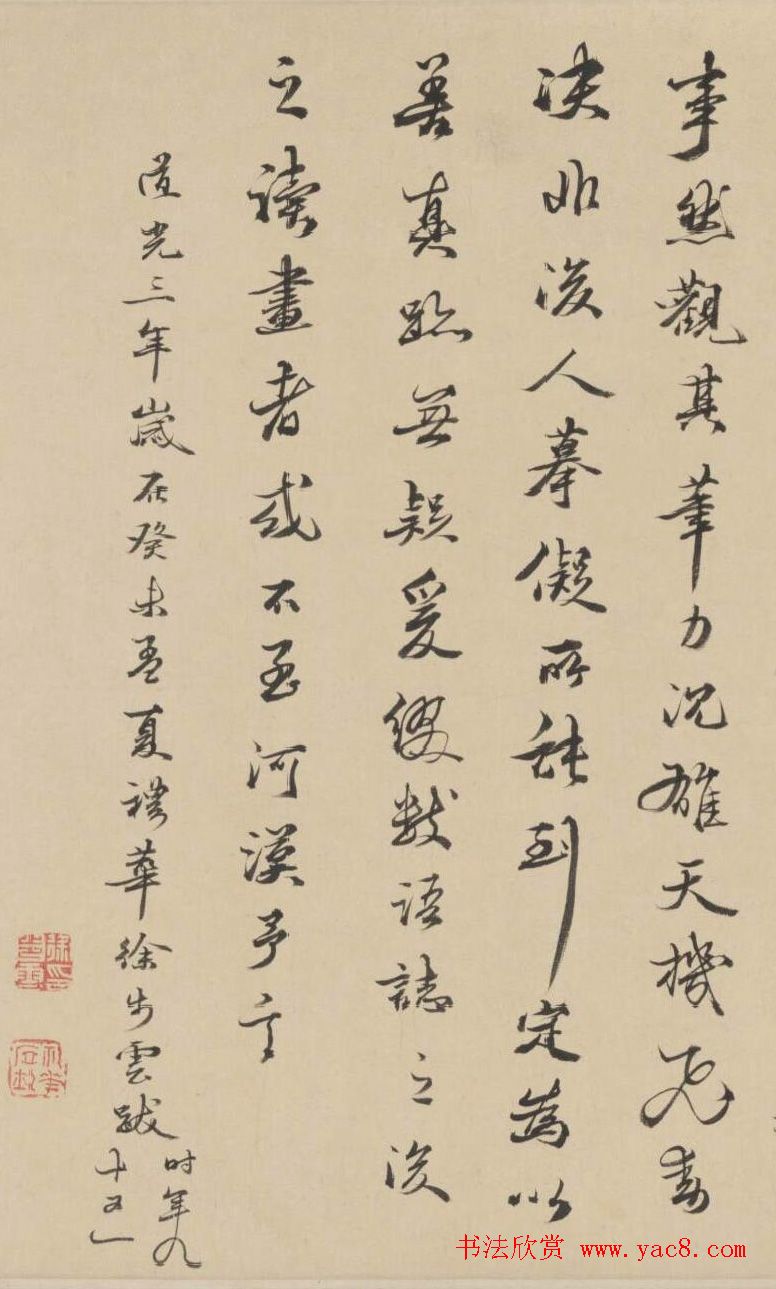 事然觀其筆力沉雄天機飛
決非後人摹儗所能到定為以
善真跡無疑爰綴數語誌之後
之讀畫者或不至河漢予言
道光三年歲在癸未孟夏禮華徐步雲跋
时年九
十又一
书法欣赏 www.yac8.com